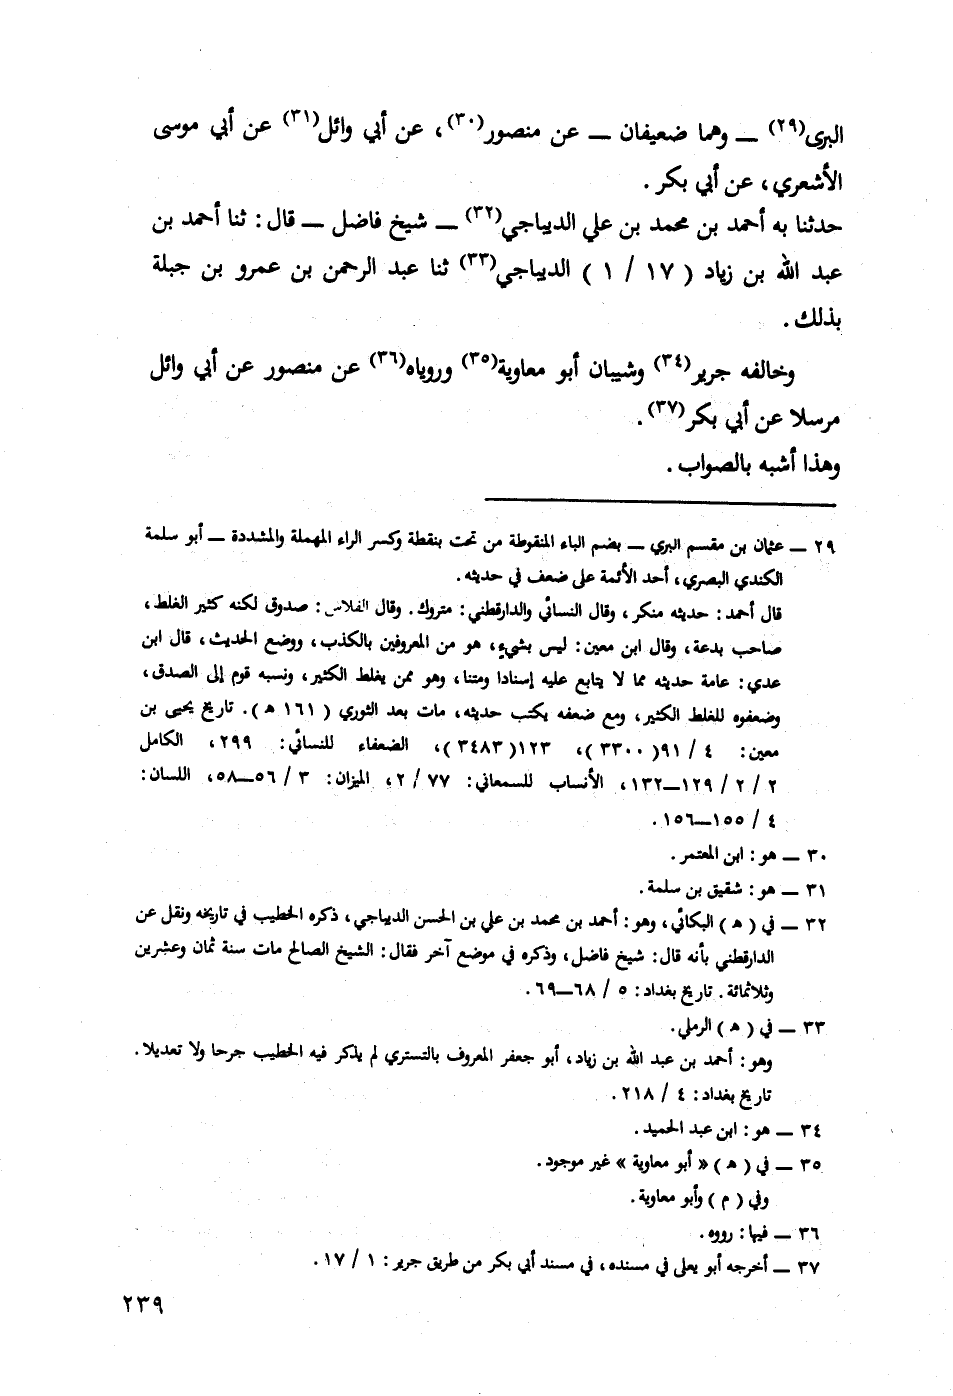 البرى(٢٩) ــ وهما ضعيفان ــ عن منصور(٣٠)، عن أبي وائل(٣١) عن أبي موسى
الأشعري، عن أبي بكر.
حدثنا به أحمد بن محمد بن علي الديباجي(٣٢) ــ شيخ فاضل ــ قال: ثنا أحمد بن
عبد الله بن زياد (١٧ / ١) الديباجي(٣٣) ثنا عبد الرحمن بن عمرو بن جبلة
بذلك.
وخالفه جرير(٣٤) وشيبان أبو معاوية(٣٥) وروياه(٣٦) عن منصور عن أبي وائل
مرسلا عن أبي بكر(٣٧).
وهذا أشبه بالصواب.
٢٩ ــ عثمان بن مقسم البري ــ بضم الباء المنقوطة من تحت بنقطة وكسر الراء المهملة والمشددة ــ أبو سلمة
الكندي البصري، أحد الأئمة على ضعف في حديثه.
قال أحمد: حديثه منكر، وقال النسائي والدارقطني: متروك. وقال الفلاس: صدوق لكنه كثير الغلط،
صاحب بدعة، وقال ابن معين: ليس بشيء، هو من المعروفين بالكذب، ووضع الحديث، قال ابن
عدي: عامة حديثه مما لا يتابع عليه إسنادا ومتنا، وهو ممن يغلط الكثير، ونسبه قوم إلى الصدق،
وضعفوه للغلط الكثير، ومع ضعفه يكتب حديثه، مات بعد الثوري (١٦١ هـ). تاريخ يحيى بن
معين: ٤ / ٩١(٣٣٠٠)، ١٢٣(٣٤٨٣)، الضعفاء للنسائي: ٢٩٩، الكامل
٢ / ٢ / ١٢٩ــ١٣٢، الأنساب للسمعاني: ٧٧ / ٢، الميزان: ٣ / ٥٦ــ٥٨، اللسان:
٤ / ١٥٥ــ١٥٦.
٣٠ ــ هو: ابن المعتمر.
٣١ ــ هو: شقيق بن سلمة.
٣٢ ــ في (هـ) البكائي، وهو: أحمد بن محمد بن علي بن الحسن الديباجي، ذكره الخطيب في تاريخه ونقل عن
الدارقطني بأنه قال: شيخ فاضل، وذكره في موضع آخر فقال: الشيخ الصالح مات سنة ثمان وعشرين
وثلاثمائة. تاريخ بغداد: ٥ / ٦٨ــ٦٩.
٣٣ ــ في (هـ) الرملي.
وهو: أحمد بن عبد الله بن زياد، أبو جعفر المعروف بالتستري لم يذكر فيه الخطيب جرحا ولا تعديلا.
تاريخ بغداد: ٤ / ٢١٨.
٣٤ ــ هو: ابن عبد الحميد.
٣٥ ــ في (هـ) «أبو معاوية» غير موجود.
وفي (م) وأبو معاوية.
٣٦ ــ فيها: رووه.
٣٧ ــ أخرجه أبو يعلى في مسنده، في مسند أبي بكر من طريق جرير: ١ / ١٧.
٢٣٩